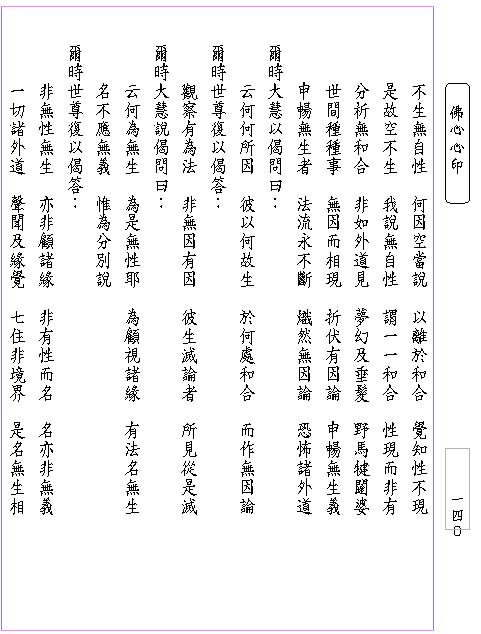 佛心心印
不生無自性　何因空當說　以離於和合　覺知性不現
是故空不生　我說無自性　謂一一和合　性現而非有
分析無和合　非如外道見　夢幻及垂髮　野馬犍闥婆
世間種種事　無因而相現　折伏有因論　申暢無生義
申暢無生者　法流永不斷　熾然無因論　恐怖諸外道
爾時大慧以偈問曰：
云何何所因　彼以何故生　於何處和合　而作無因論
爾時世尊復以偈答：
觀察有為法　非無因有因　彼生滅論者　所見從是滅
爾時大慧說偈問曰：
云何為無生　為是無性耶　為顧視諸緣　有法名無生
名不應無義　惟為分別說
爾時世尊復以偈答：
非無性無生　亦非顧諸緣　非有性而名　名亦非無義
一切諸外道　聲聞及緣覺　七住非境界　是名無生相
一四〇